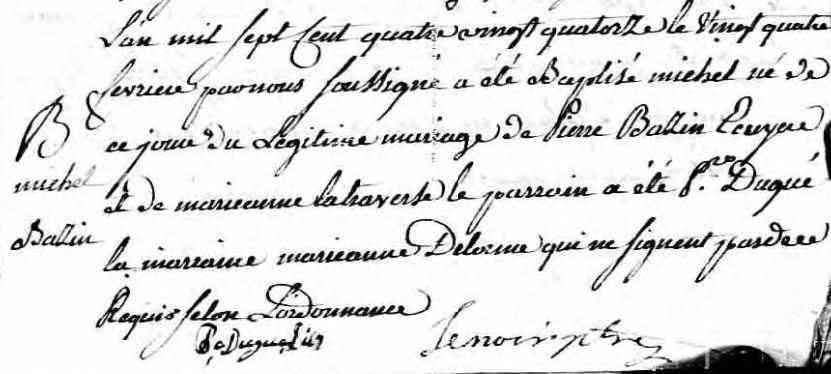 L'an mil sept Cent quatre vingt quatorze le Vingt quatre
fevrier par nous soussigné a été Baptisé michel né de
ce jour du Légitime mariage de Pierre Ballin Ecuyer
et de marieanne latraverse le parrain a été P.re Dugué
la marraine marieanne Delorme qui ne signent pas de ce
Requis selon L'ordonnance
B
michel
Ballin
lenoir ptre